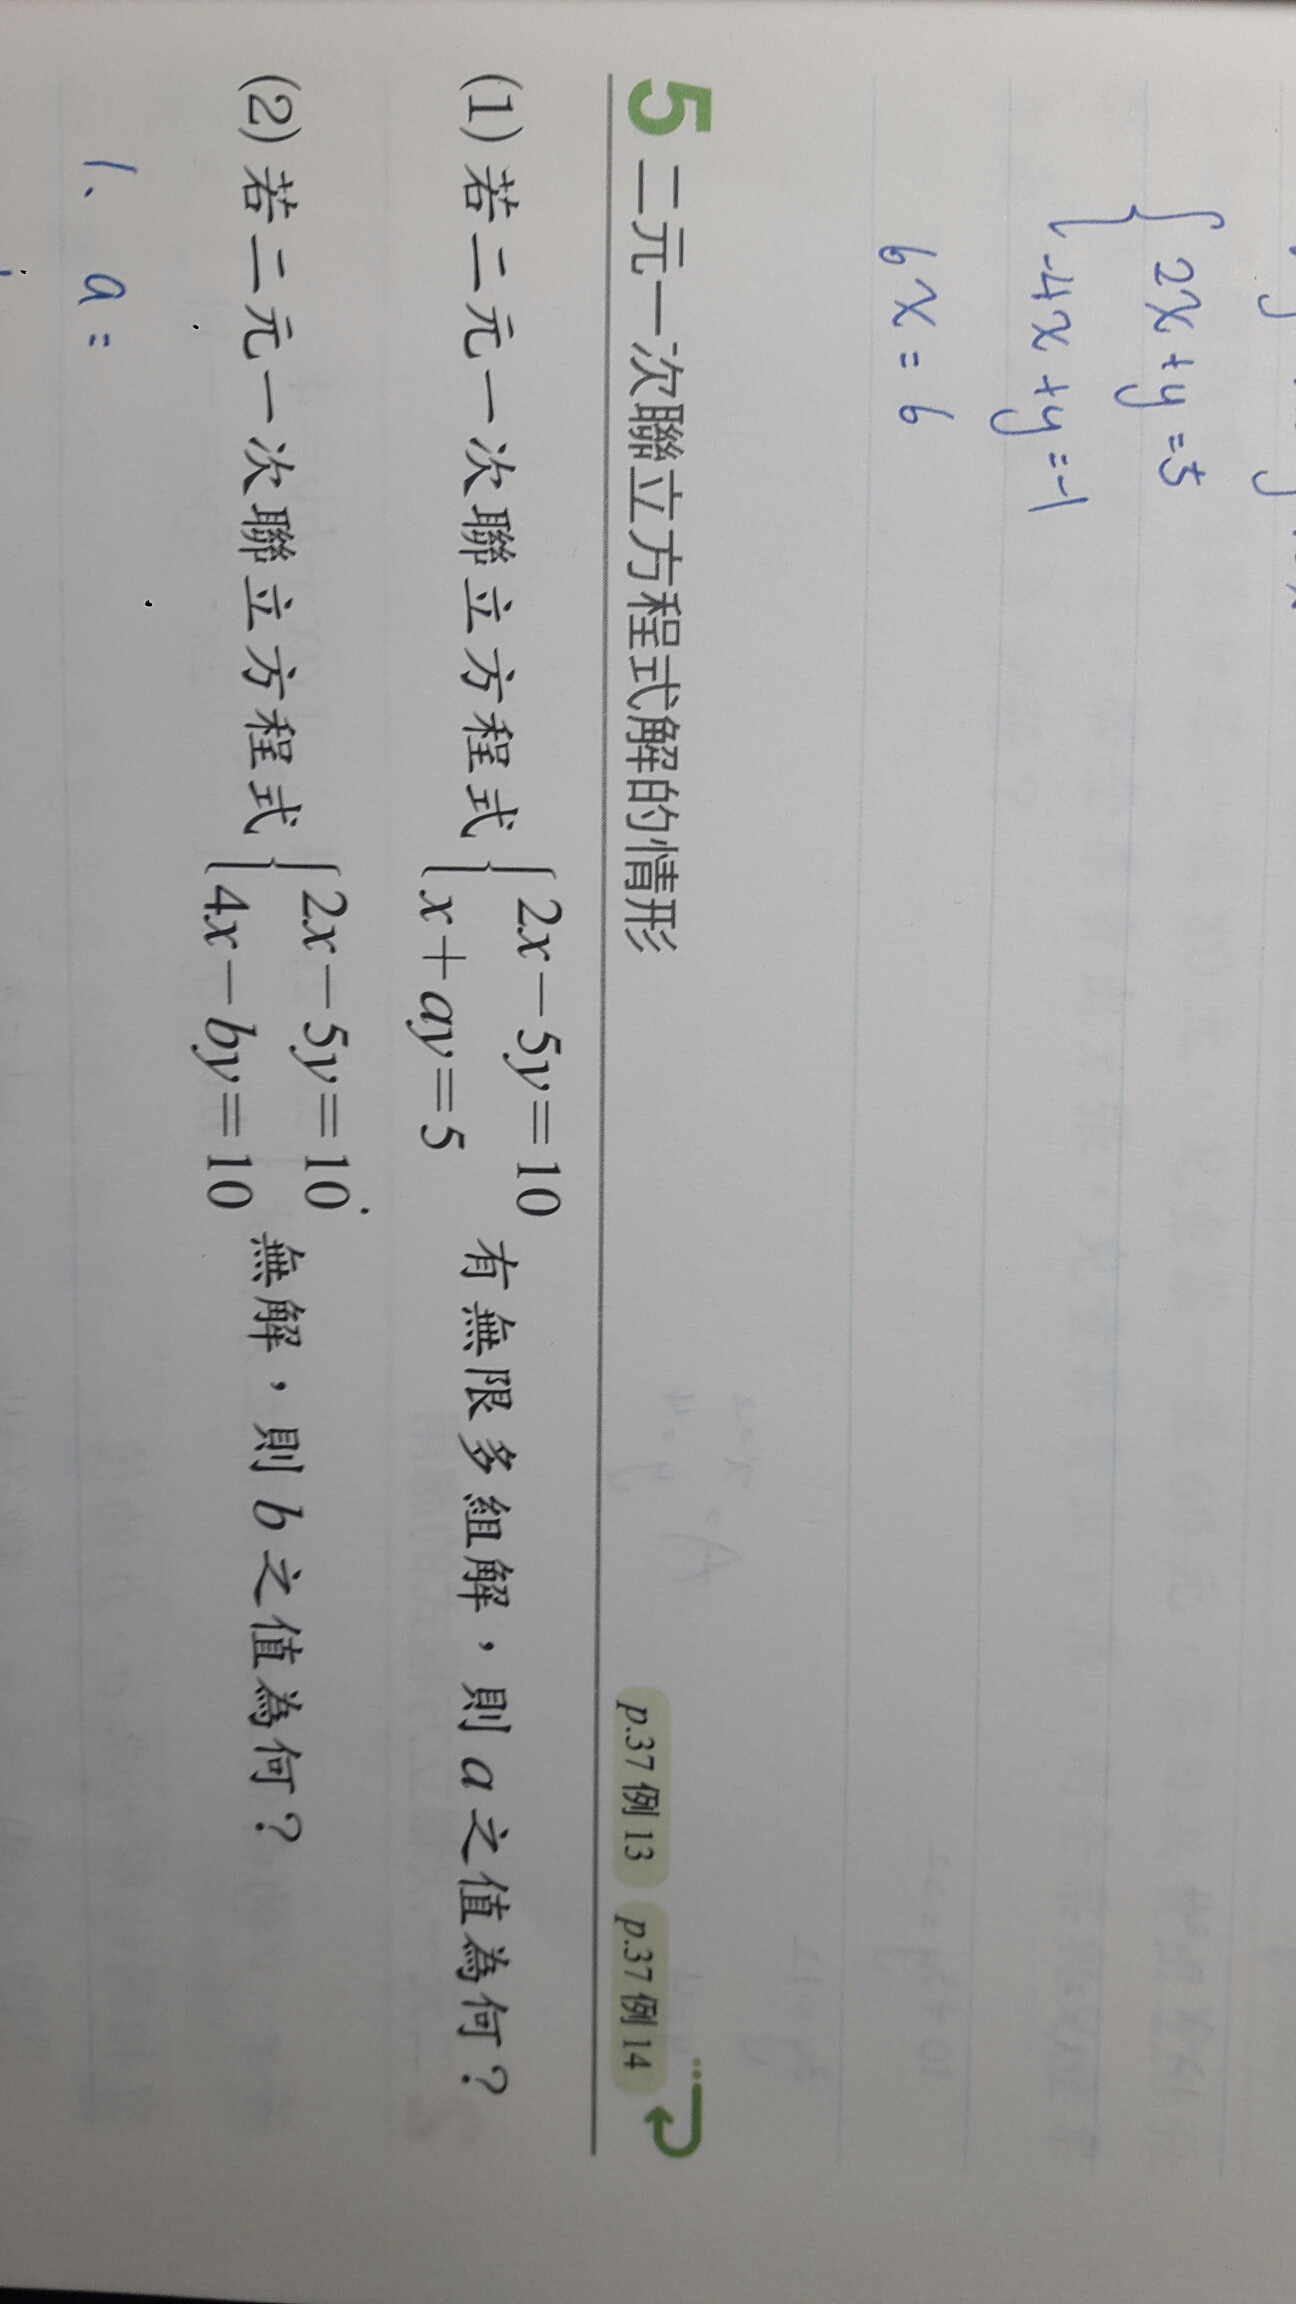 {2x+y=5
-4x+y=-1
6x=6
5 二元一次聯立方程式解的情形 p.37 例 13 p.37 例 14
(1) 若二元一次聯立方程式 {2x－5y＝10
x＋ay＝5 有無限多組解，則 a 之值為何？
(2) 若二元一次聯立方程式 {2x－5y＝10
4x－by＝10 無解，則 b 之值為何？
1、a=